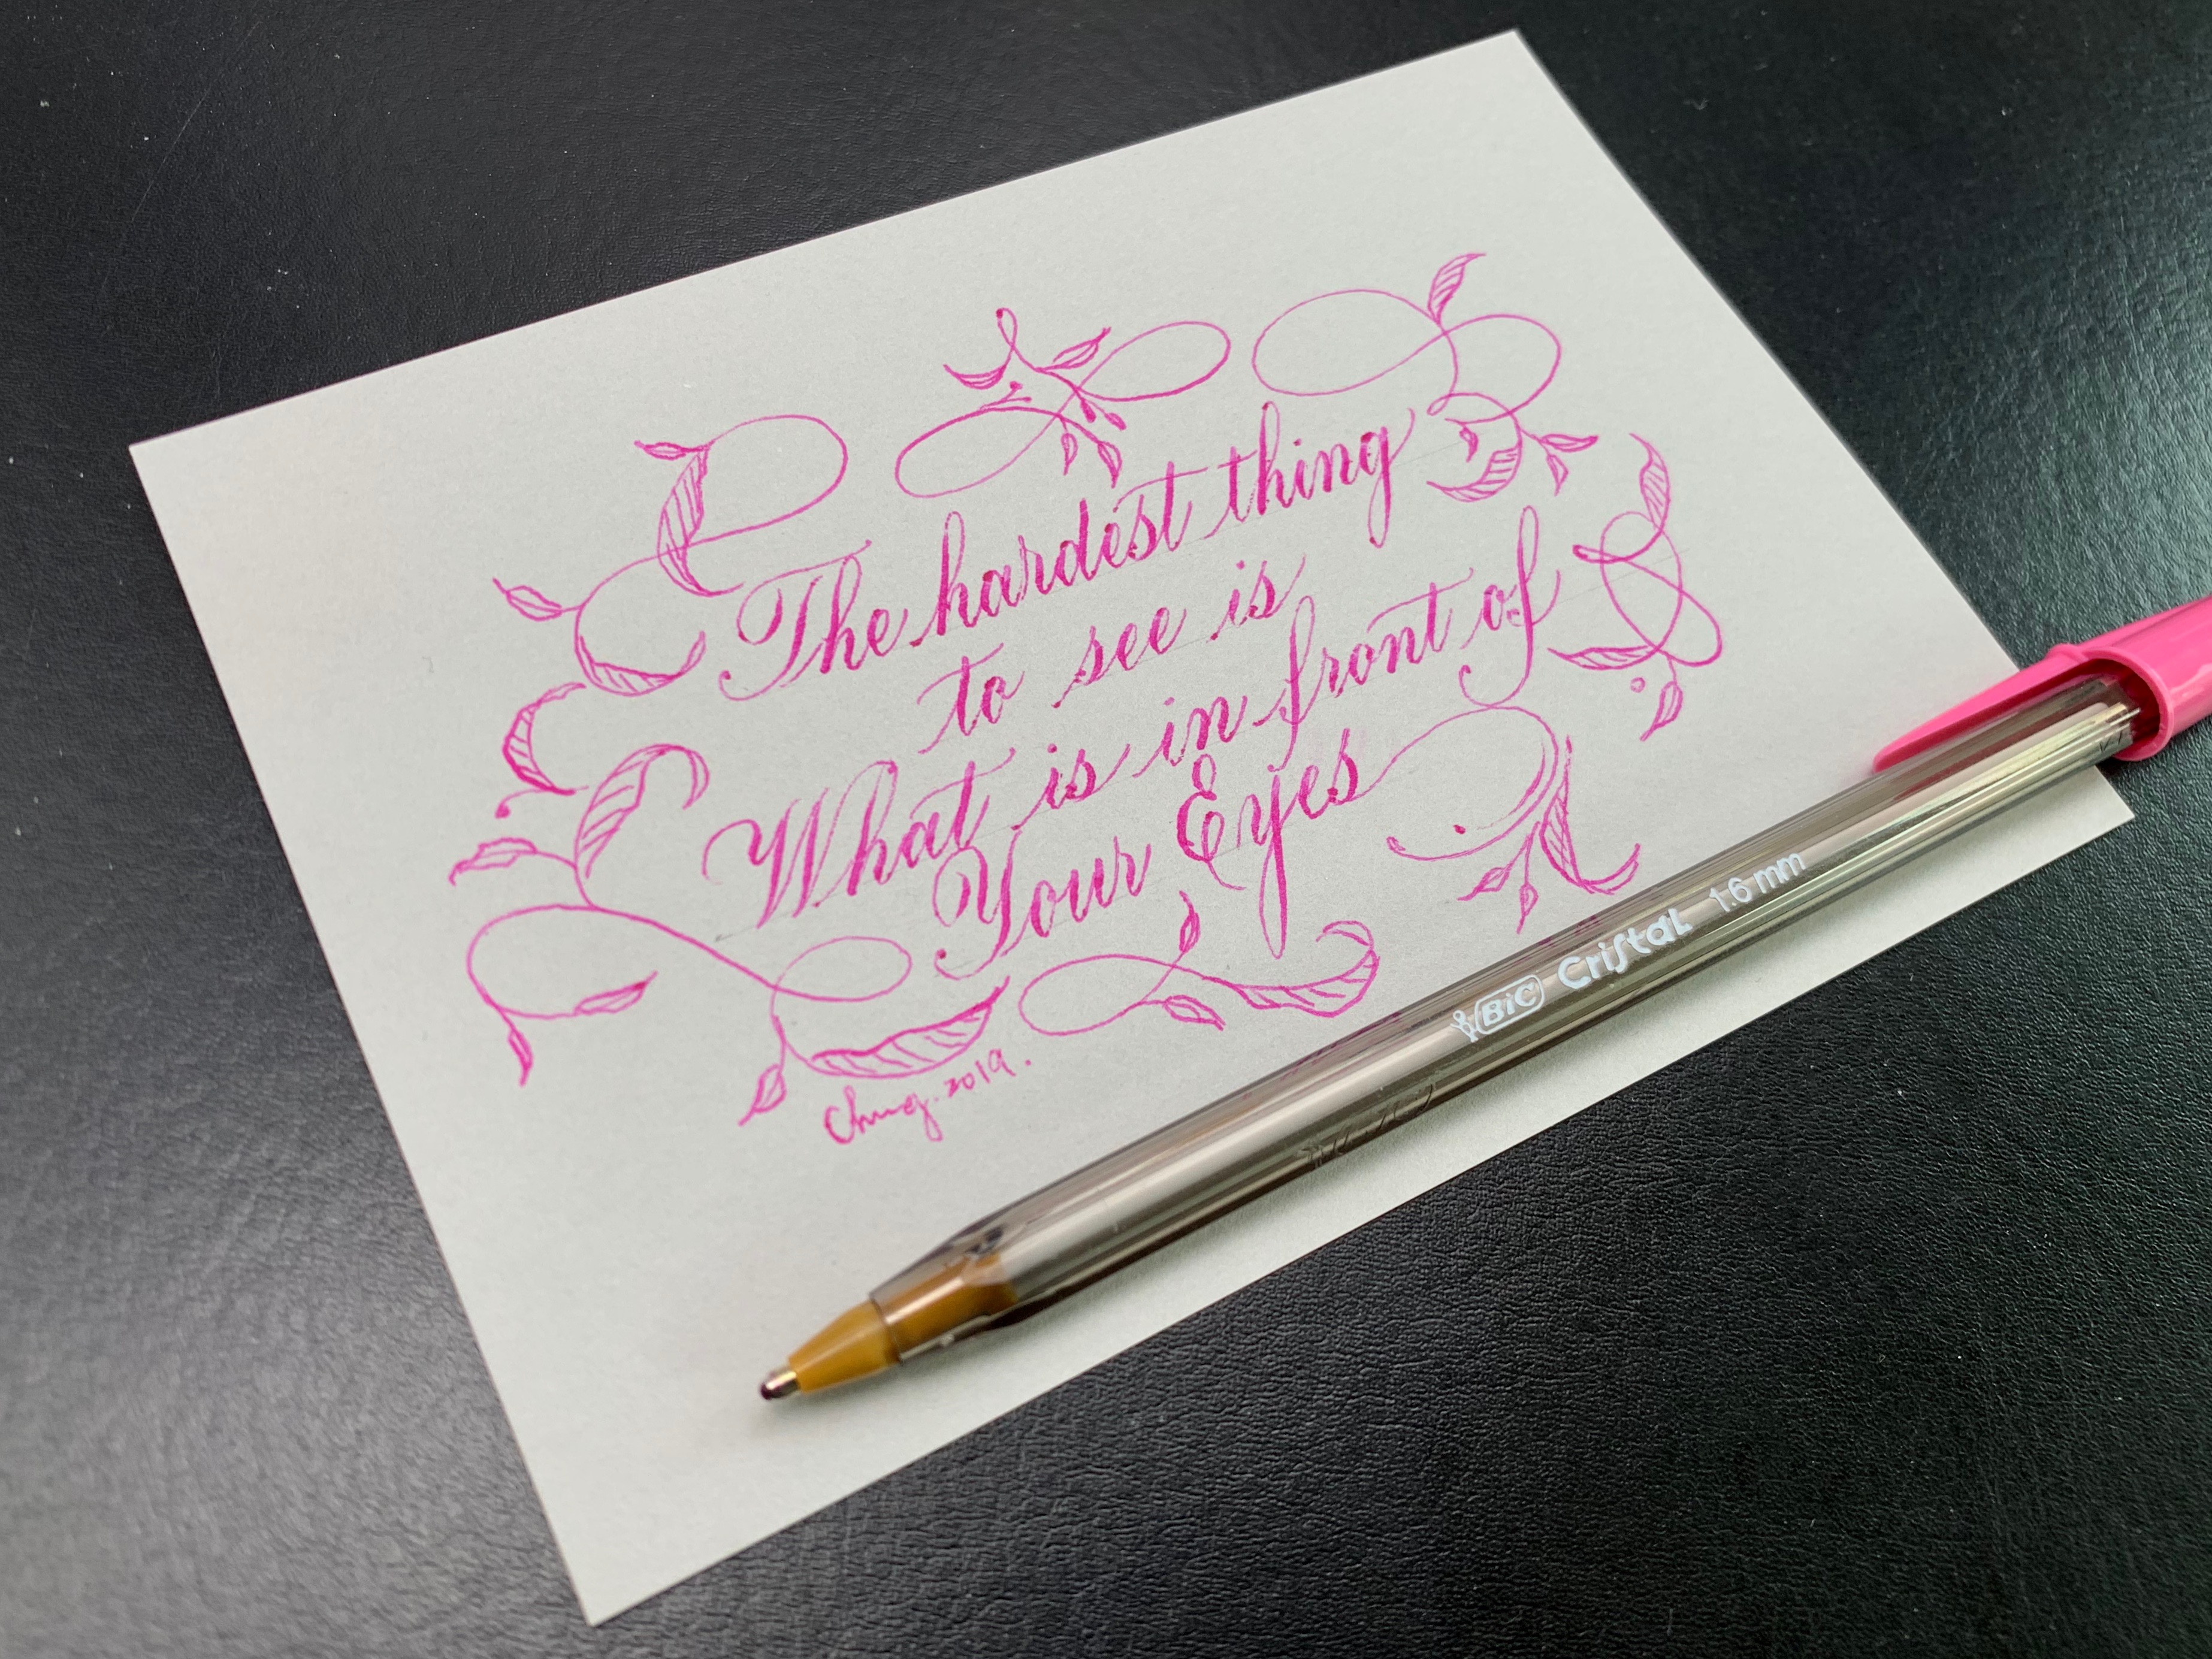 The hardest thing
to see is
What is in front of
Your Eyes
Chung. 2019.
BIC Cristal 1.6 mm